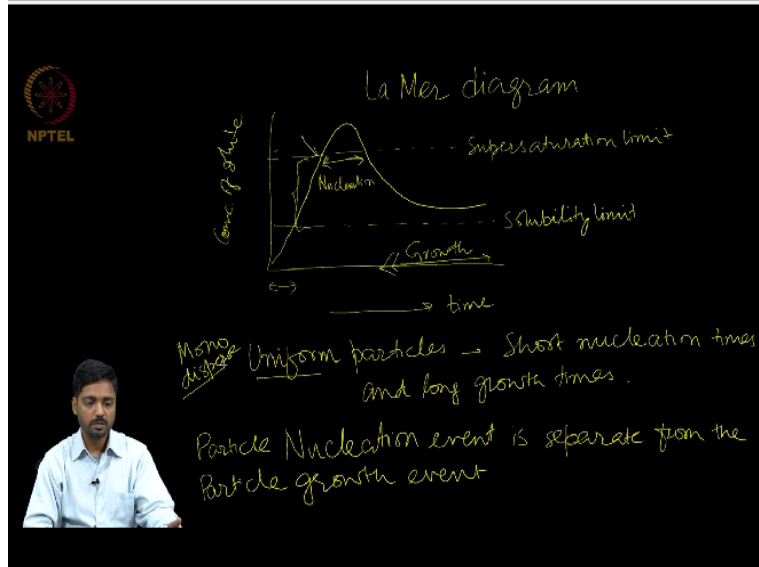 NPTEL
La Mer diagram
Conc. of solute
Supersaturation limit
Nucleation
Solubility limit
Growth
time
Mono
disperse
Uniform particles → Short nucleation times
and long growth times.
Particle Nucleation event is separate from the
Particle growth event